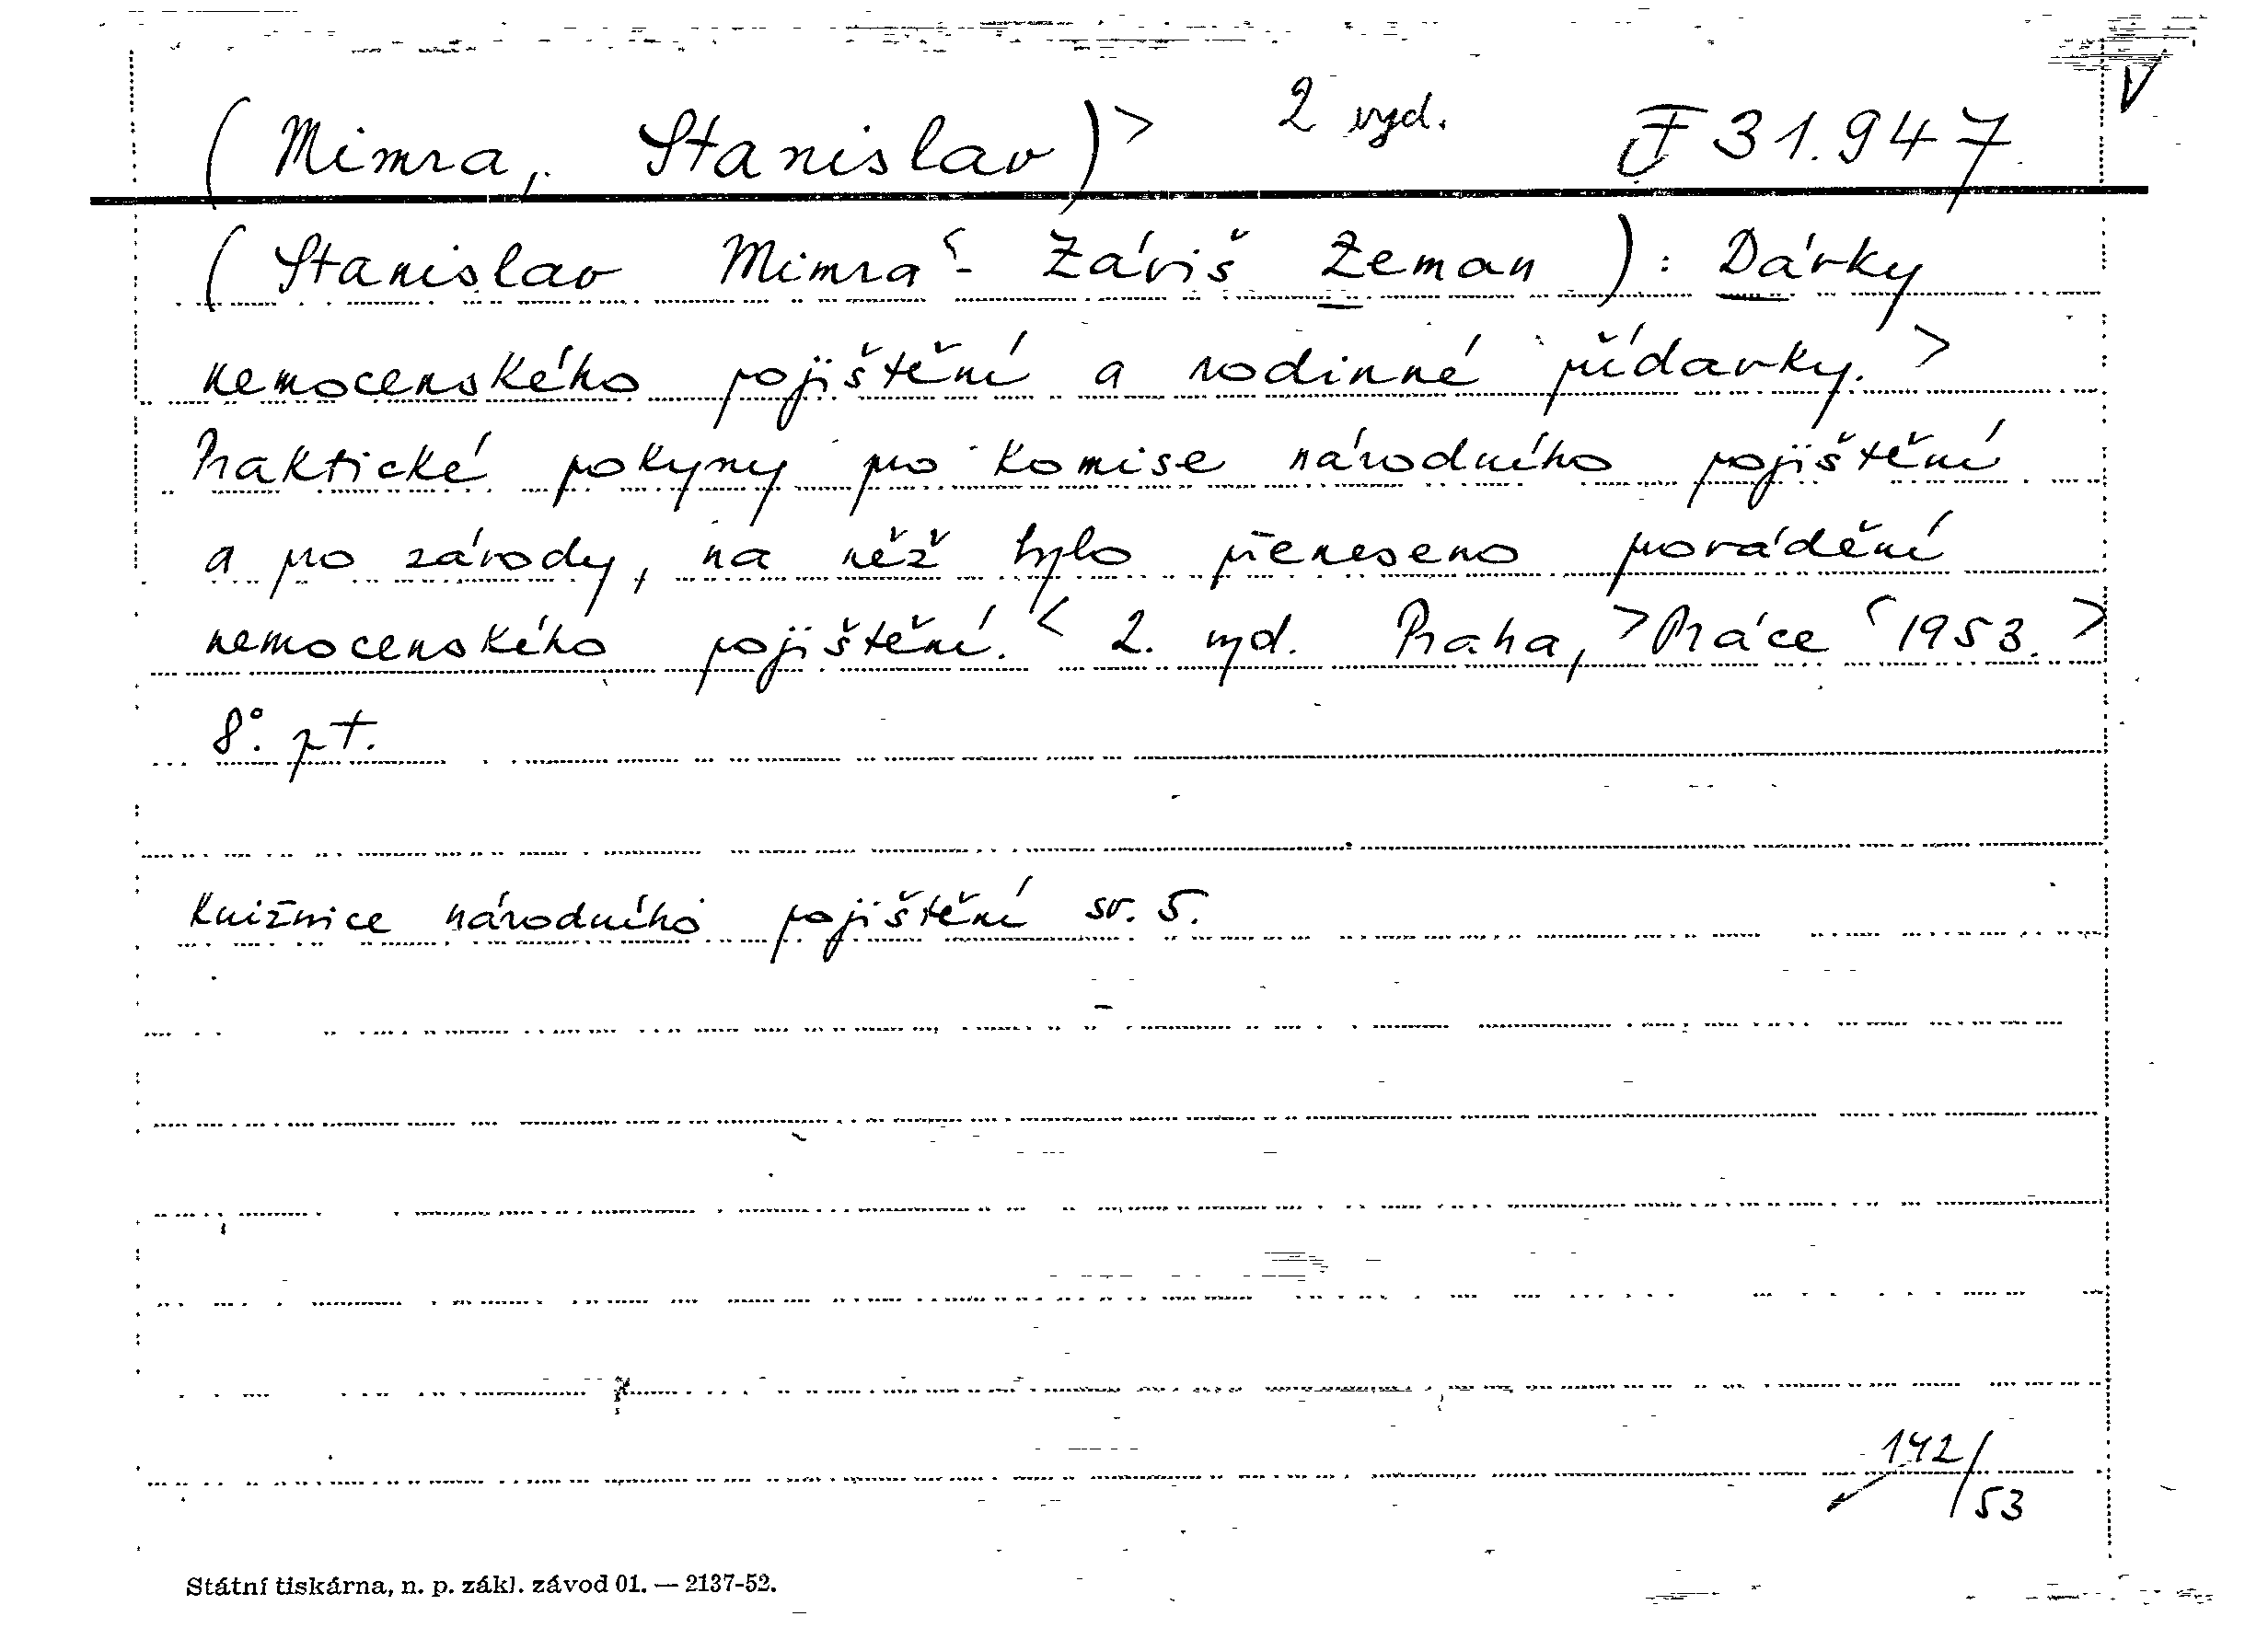 (Mimra, Stanislav)> 2 vyd. F 31.947 V
(Stanislav Mimra<- Záviš Zeman): Dávky
nemocenského pojištění a rodinné přídavky.>
Praktické pokyny pro komise národního pojištění
a pro závody, na něž bylo přeneseno provádění
nemocenského pojištění.< 2. vyd. Praha,> Práce <1953.>
8°. pt.
Knižnice národního pojištění sv. 5.
142/
53
Státní tiskárna, n. p. zákl. závod 01. — 2137-52.